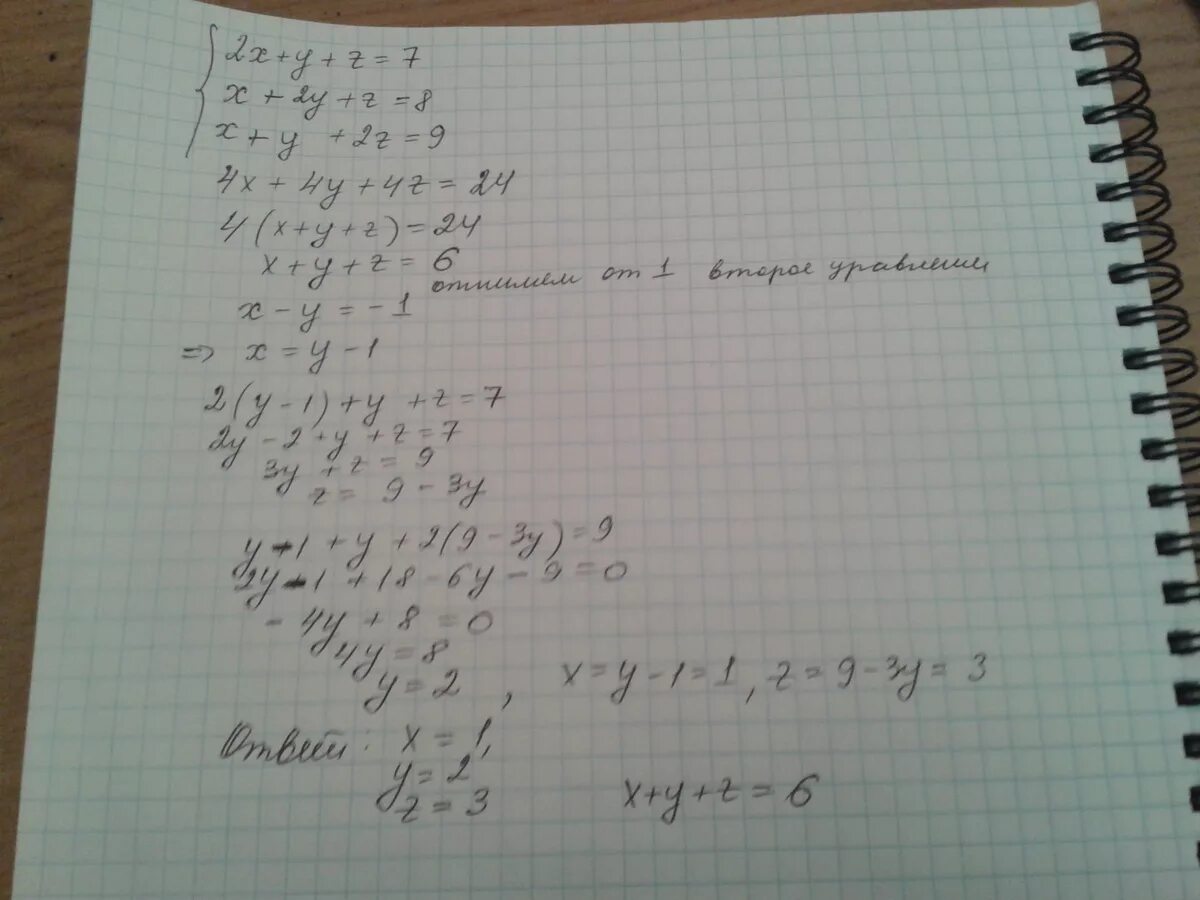 2x + y + z = 7
x + 2y + z = 8
x + y + 2z = 9
4x + 4y + 4z = 24
4(x+y+z) = 24
x + y + z = 6
отнимем от 1 второе уравнение
x - y = -1
=> x = y - 1
2(y - 1) + y + z = 7
2y - 2 + y + z = 7
3y + z = 9
z = 9 - 3y
y - 1 + y + 2(9 - 3y) = 9
2y - 1 + 18 - 6y - 9 = 0
- 4y + 8 = 0
4y = 8
y = 2 , x = y - 1 = 1, z = 9 - 3y = 3
Ответ: x = 1,
y = 2
z = 3 x+y+z = 6